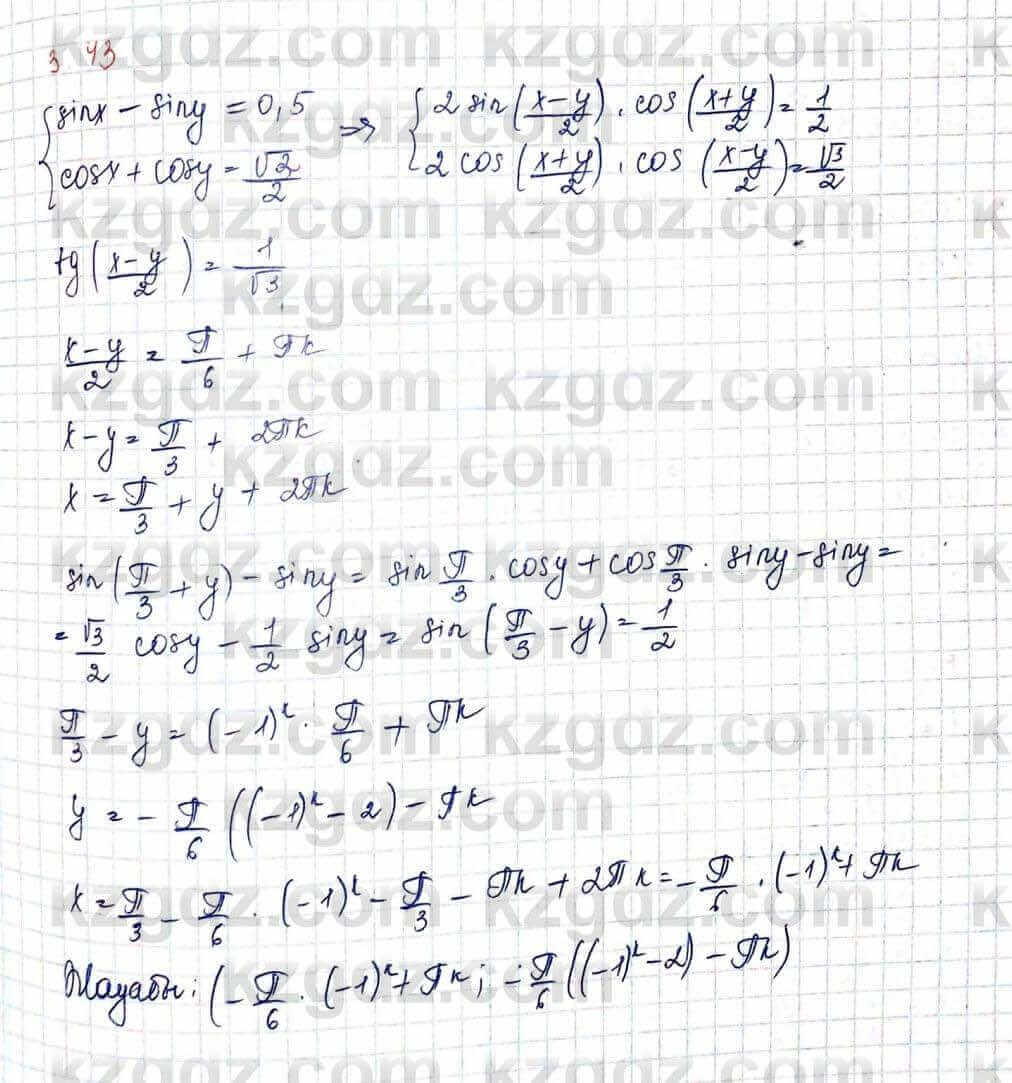 3 43
{ sinx − siny = 0,5 ⇒ { 2 sin((x−y)/2) · cos((x+y)/2) = 1/2
{ cosx + cosy = √2/2 { 2 cos((x+y)/2) · cos((x−y)/2) = √3/2
tg((x−y)/2) = 1/√3
(x−y)/2 = π/6 + πk
x−y = π/3 + 2πk
x = π/3 + y + 2πk
sin(π/3 + y) − siny = sin π/3 · cosy + cos π/3 · siny − siny =
= √3/2 cosy − 1/2 siny = sin(π/3 − y) = 1/2
π/3 − y = (−1)^k · π/6 + πk
y = − π/6 ((−1)^k − 2) − πk
x = π/3 − π/6 · (−1)^k − π/3 − πk + 2πk = − π/6 · (−1)^k + πk
Жауабы: (− π/6 · (−1)^k + πk; − π/6 ((−1)^k − 2) − πk)
kzgaz.com